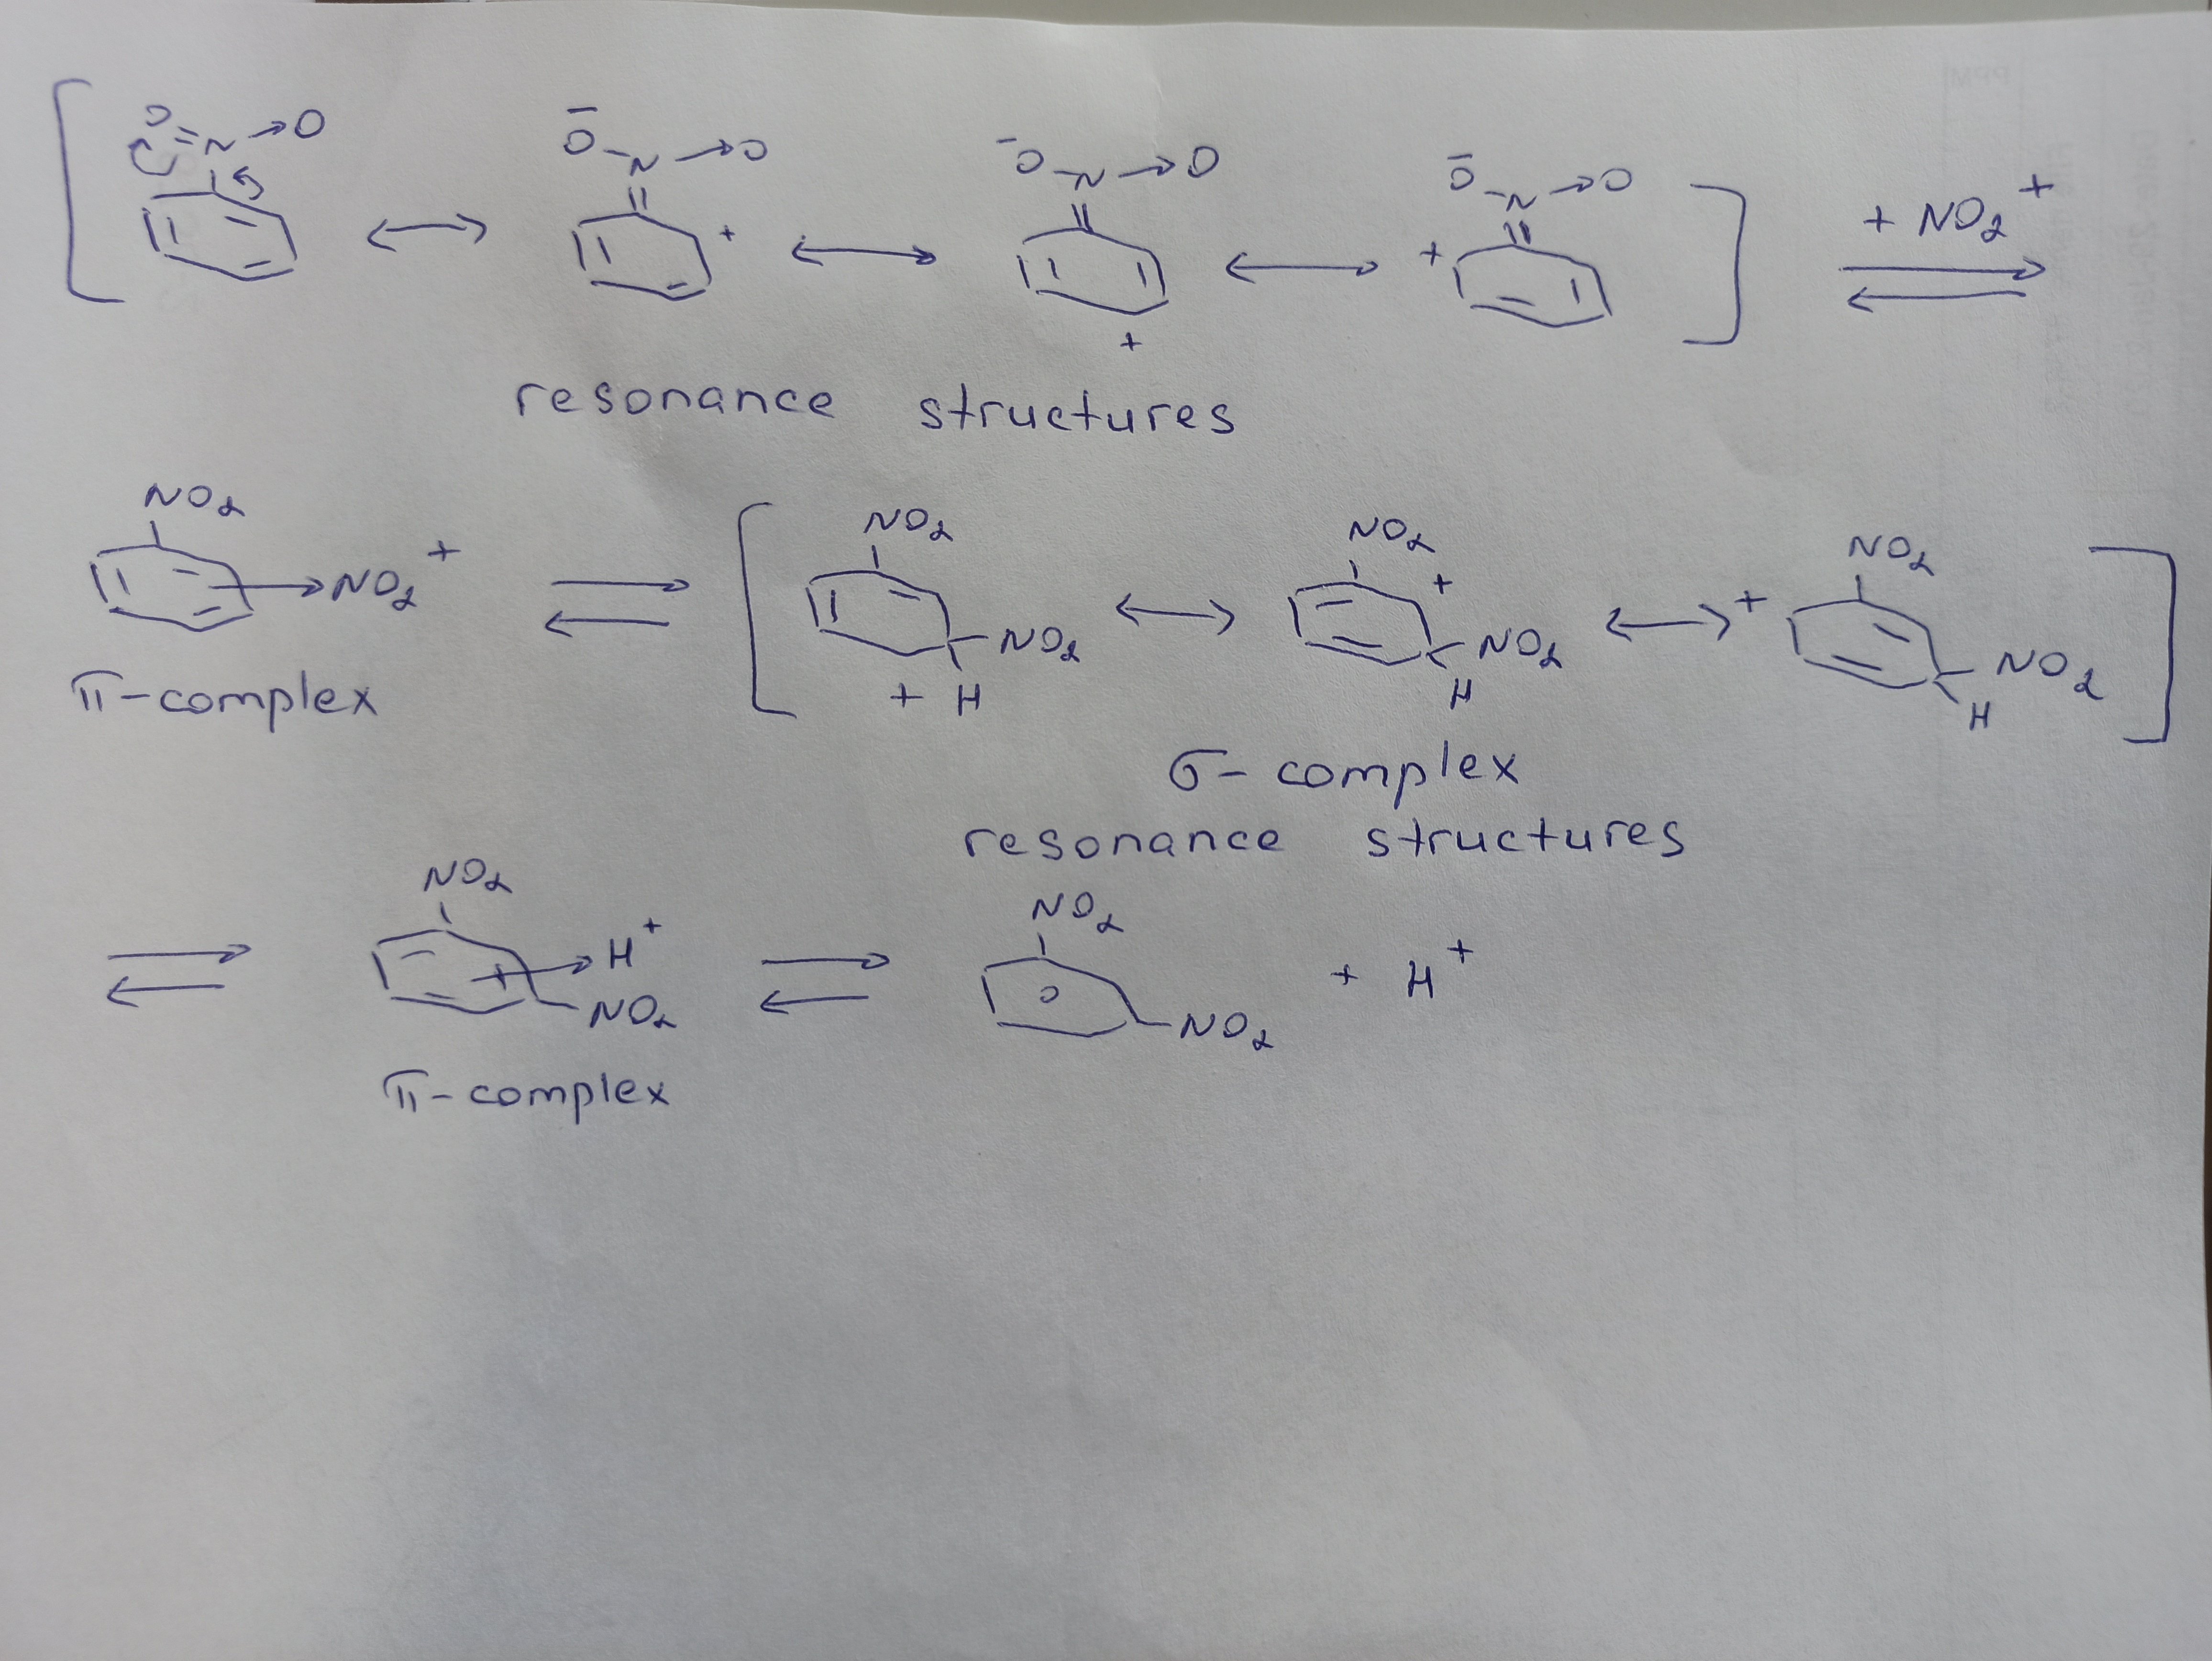 O=N→O ⟷ ⁻O-N→O + ⟷ ⁻O-N→O + ⟷ ⁻O-N→O + + NO2+ ⇌
resonance structures
NO2 →NO2+ ⇌ [ NO2 NO2 + H ⟷ NO2 + NO2 H ⟷ + NO2 NO2 H ]
π-complex
σ-complex
resonance structures
⇌ NO2 →H+ NO2 ⇌ NO2 NO2 + H+
π-complex